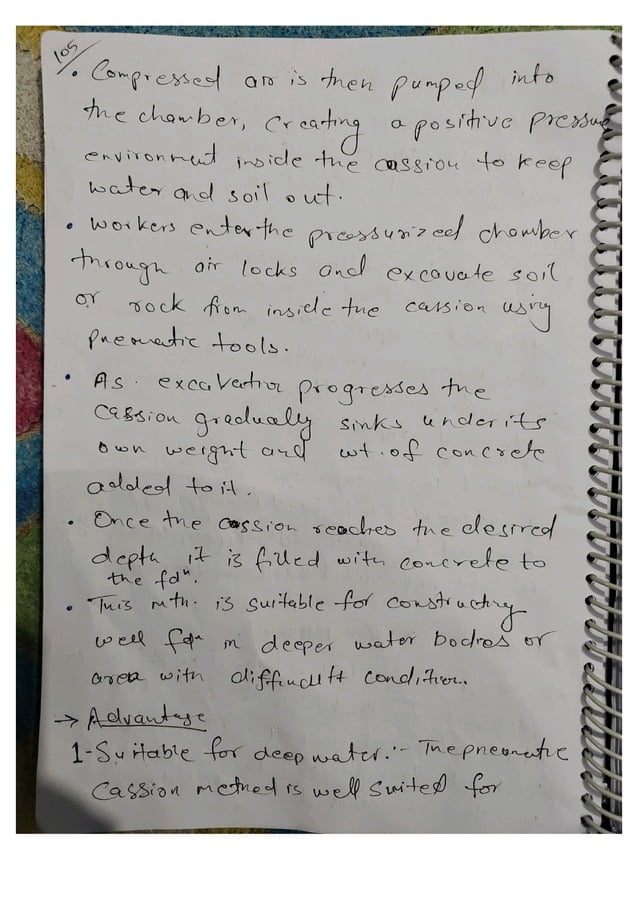 105
• Compressed air is then pumped into
the chamber, creating a positive pressure
environment inside the cassion to keep
water and soil out.
• Workers enter the pressurized chamber
through air locks and excavate soil
or rock from inside the cassion using
pneumatic tools.
• As excavation progresses the
cassion gradually sinks under its
own weight and wt. of concrete
added to it.
• Once the cassion reaches the desired
depth it is filled with concrete to
the fdn.
• This mth. is suitable for constructing
well fdn in deeper water bodies or
area with difficult condition.
→ Advantage
1-Suitable for deep water:- The pneumatic
Cassion method is well suited for